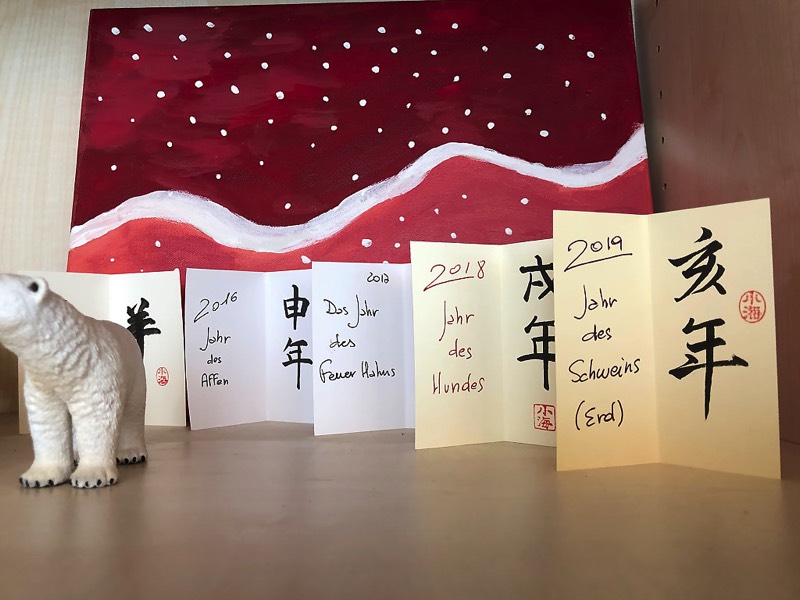 羊
小海
2016
Jahr
des
Affen
申年
2017
Das Jahr
des
Feuer Hahns
2018
Jahr
des
Hundes
戌年
小海
2019
Jahr
des
Schweins
(Erd)
亥年
小海